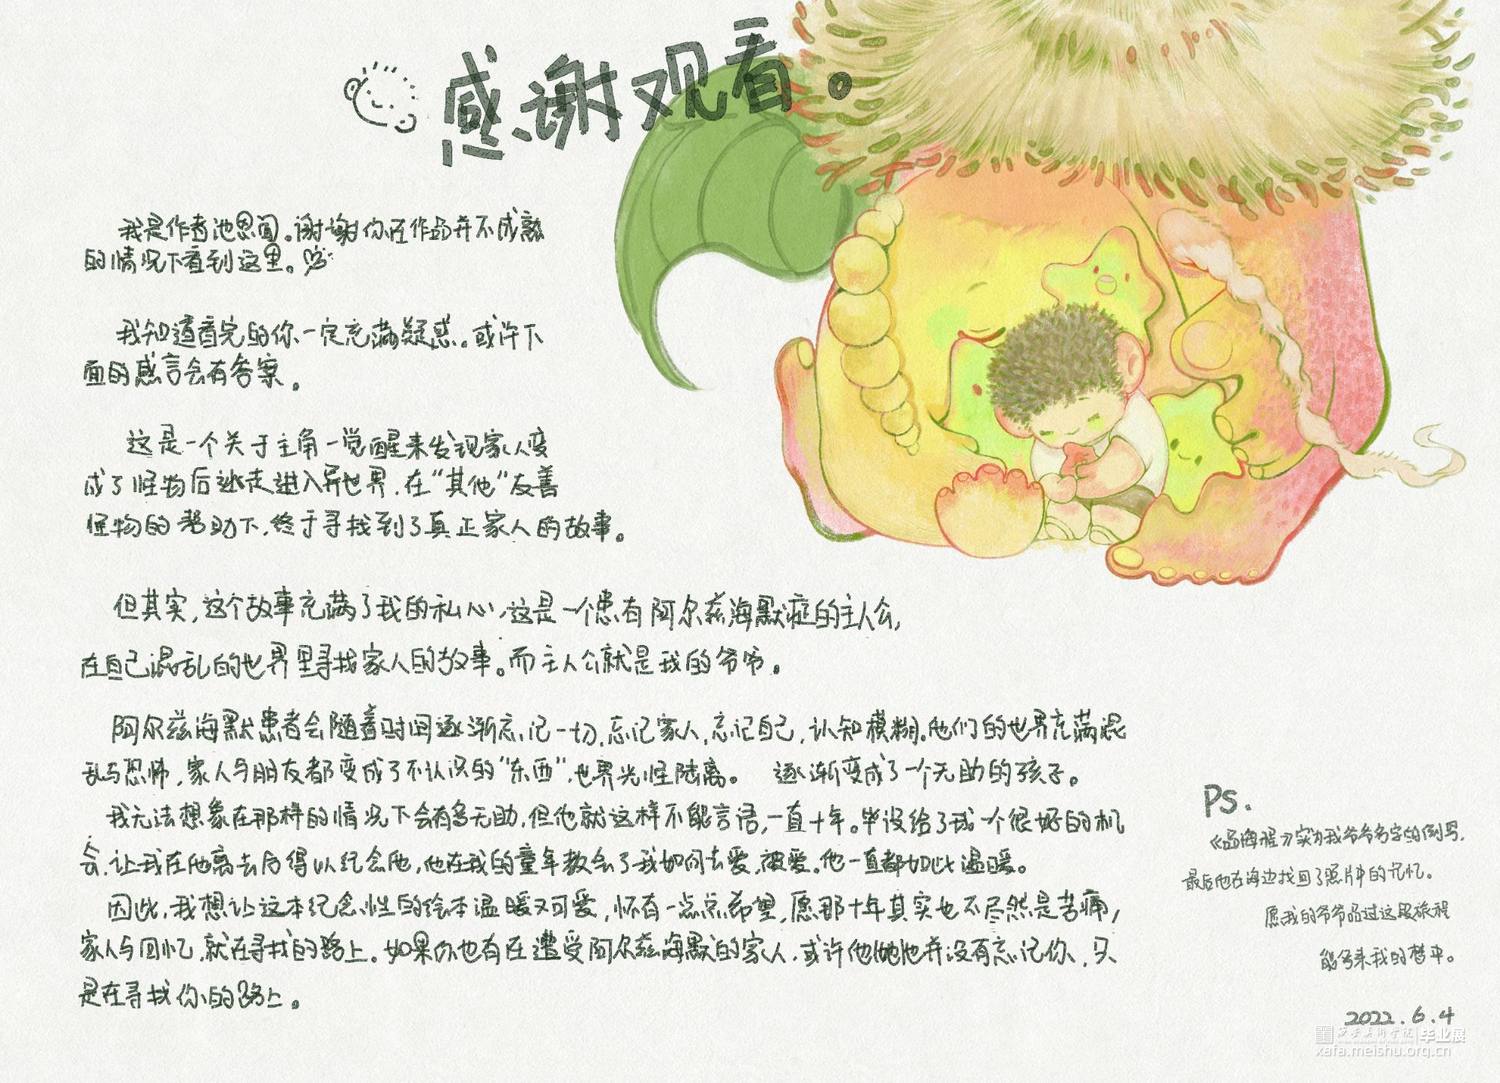 感谢观看。
我是作者池思闻。谢谢你在作品并不成熟
的情况下看到这里。
我知道看完的你一定充满疑惑。或许下
面的感言会有答案。
这是一个关于主角一觉醒来发现家人变
成了怪物后逃走进入异世界，在“其他”友善
怪物的帮助下，终于寻找到了真正家人的故事。
但其实，这个故事充满了我的私心，这是一个患有阿尔兹海默症的主人公，
在自己混乱的世界里寻找家人的故事。而主人公就是我的爷爷。
阿尔兹海默患者会随着时间逐渐忘记一切，忘记家人，忘记自己，认知模糊。他们的世界充满混
乱与恐怖，家人与朋友都变成了不认识的“东西”，世界光怪陆离。 逐渐变成了一个无助的孩子。
我无法想象在那样的情况下会有多无助，但他就这样不能言语，一直十年。毕设给了我一个很好的机
会，让我在他离去后得以纪念他，他在我的童年教会了我如何去爱，被爱。他一直都如此温暖。
因此，我想让这本纪念性的绘本温暖又可爱，怀有一点点希望，愿那十年其实也不尽然是苦痛，
家人与回忆，就在寻找的路上。如果你也有在遭受阿尔兹海默的家人，或许他/她/他并没有忘记你，只
是在寻找你的路上。
Ps.
实为我爷爷名字的倒写，
最后他在海边找回了照片中的记忆。
愿我的爷爷 过这段旅程
能够来我的梦中。
2022.6.4
西安美术学院 毕业展
xafa.meishu.org.cn